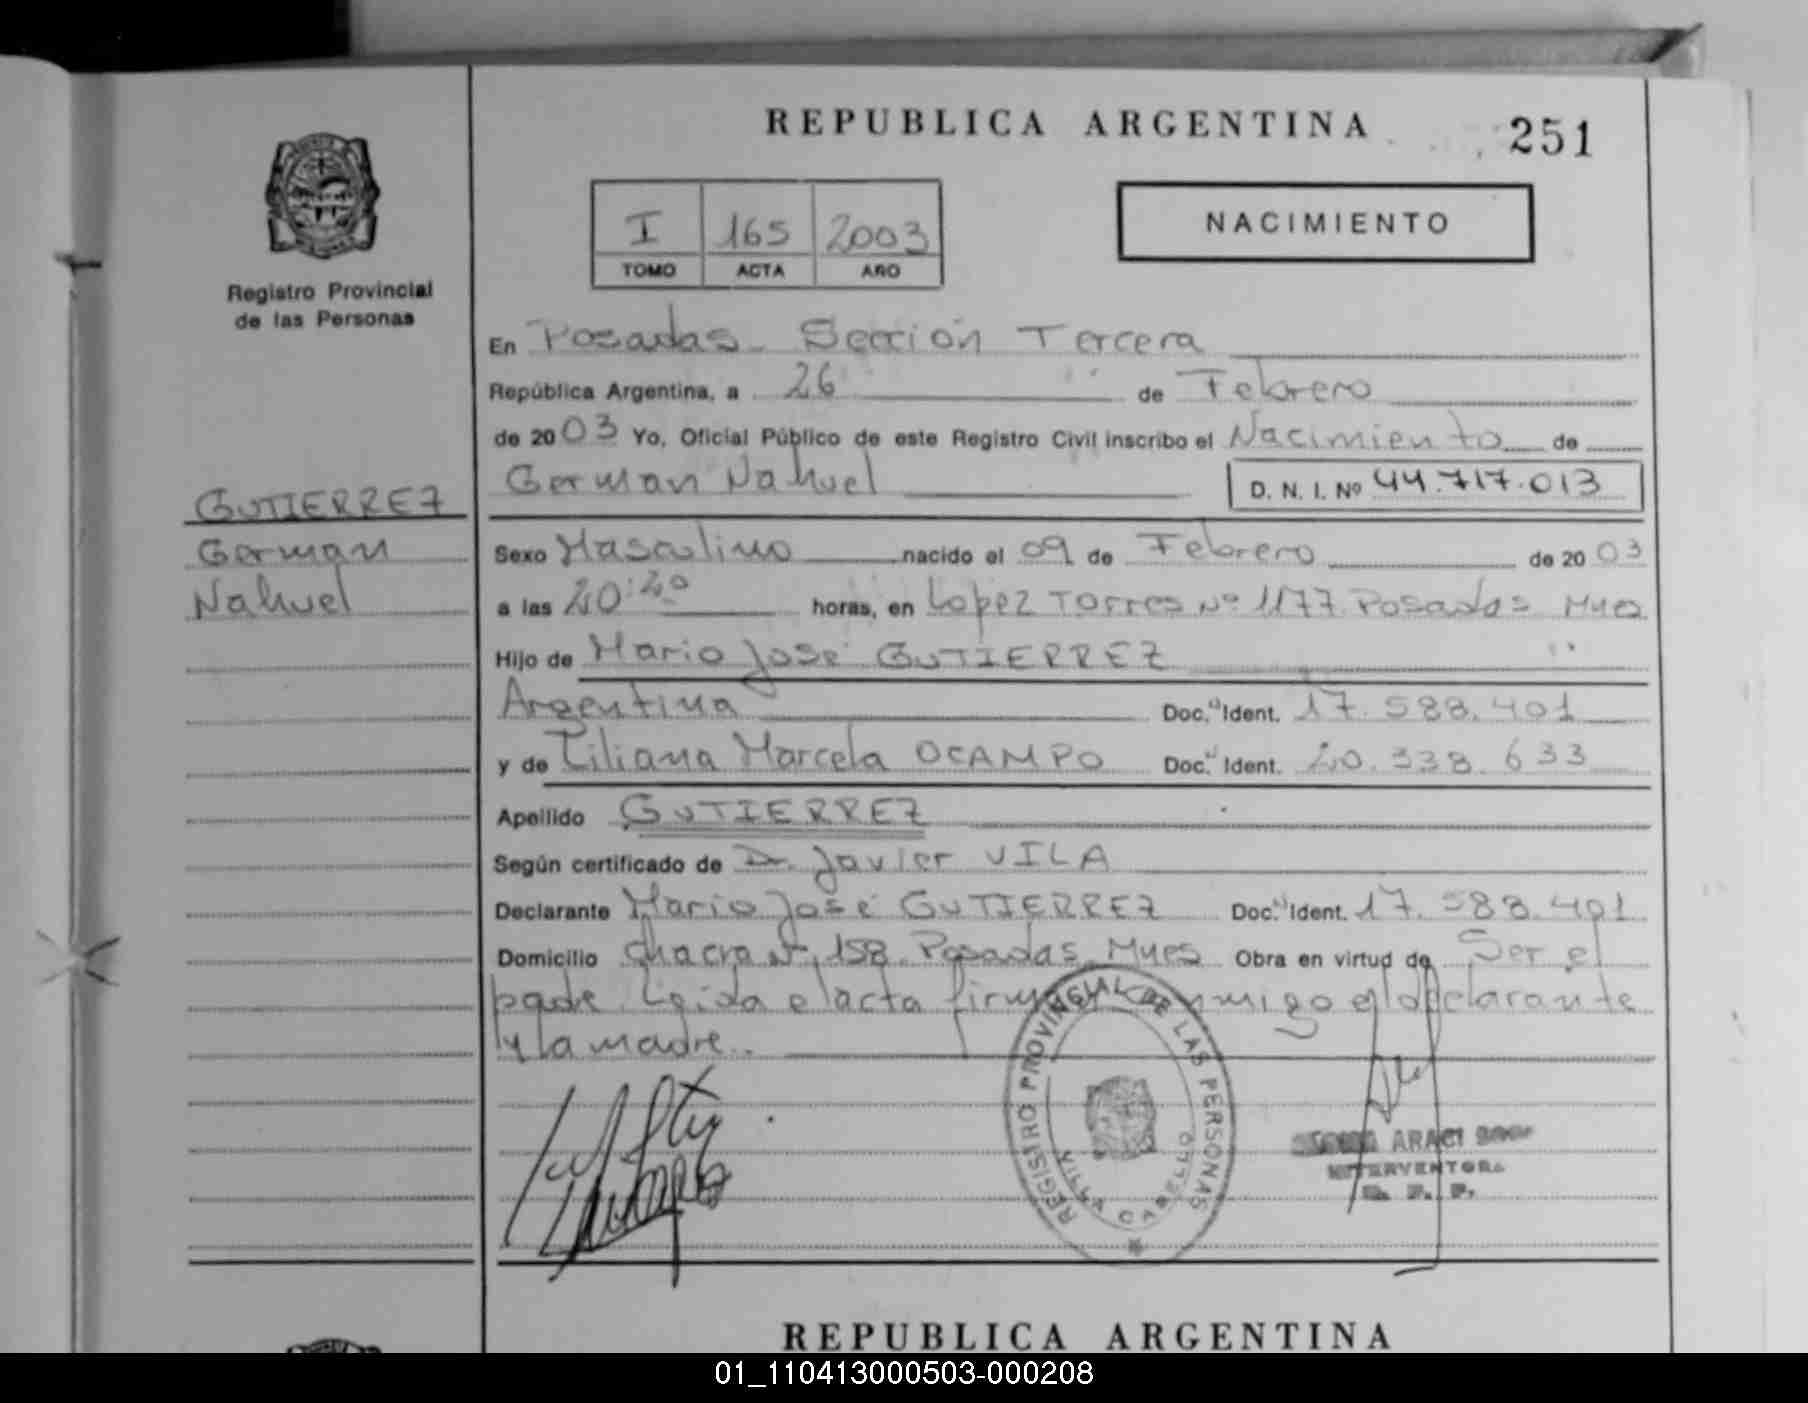 REPUBLICA ARGENTINA
251
I 165 2003
TOMO ACTA AÑO
NACIMIENTO
Registro Provincial
de las Personas
En Posadas - Sección Tercera
República Argentina, a 26 de Febrero
de 2003 Yo, Oficial Público de este Registro Civil inscribo el Nacimiento de
German Nahuel D. N. I. Nº 44.717.013
GUTIERREZ
German
Nahuel
Sexo Masculino nacido el 09 de Febrero de 2003
a las 20:20 horas, en Lopez Torres Nº 1177 Posadas Mnes
Hijo de Mario José GUTIERREZ
Argentina Doc. Ident. 17.588.401
y de Liliana Marcela OCAMPO Doc. Ident. 20.338.633
Apellido GUTIERREZ
Según certificado de Dr. Javier VILA
Declarante Mario José GUTIERREZ Doc. Ident. 17.588.401
Domicilio Chacra Nº 158 Posadas Mnes Obra en virtud de Ser el
padre. Leida el acta firman conmigo el declarante
y la madre.
REGISTRO PROVINCIAL DE LAS PERSONAS
VILLA CABELLO
ARACI
INTERVENTORA
R. P. P.
REPUBLICA ARGENTINA
01_110413000503-000208